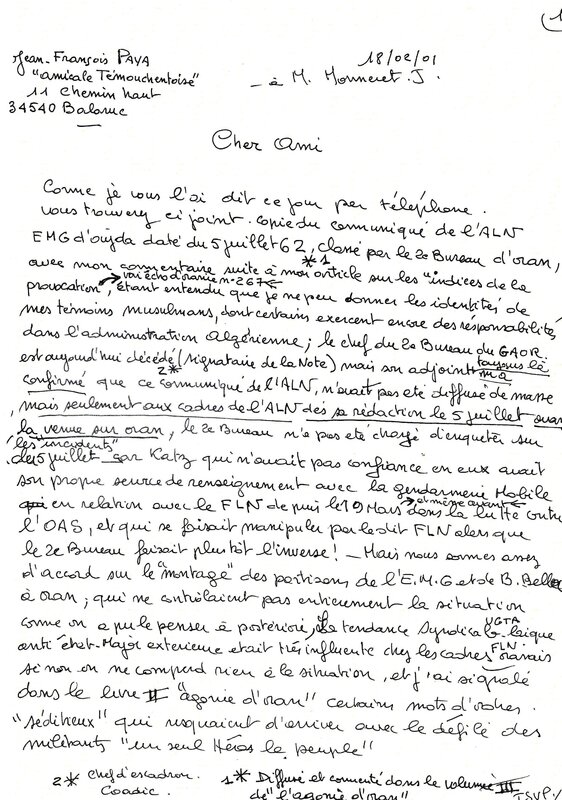 1
Jean-François PAYA
"amicale Témouchentoise"
11 chemin haut
34540 Balaruc
18/02/01
à M. Monneret. J.
Cher Ami
Comme je vous l'ai dit ce jour par téléphone.
vous trouverez ci joint. copie du communiqué de l'ALN
EMG d'oujda daté du 5 juillet 62, classé par le 2e Bureau d'oran,
avec mon commentaire suite à mon article sur les "indices de la *1
voir écho d'oranie n° 267
provocation", étant entendu que je ne peu donner les identités de
mes témoins musulmans, dont certains exercent encore des résponsabilités
dans l'administration Algérienne; le chef du 2e Bureau du GAOR.
est aujourd'hui décédé (signataire de la Note) mais son adjoint m'a toujours le
2*
confirmé que ce communiqué de l'ALN, n'avait pas eté diffusé de masse
, mais seulement aux cadres de l'ALN dés sa rédaction le 5 juillet avant
la venue sur oran, le 2e Bureau n'a pas eté chargé d'enquéter sur
"les incidents"
du 5 juillet car Katz qui n'avait pas confiance en eux avait
son propre source de renseignement avec la gendarmerie Mobile
et même avant
en relation avec le FLN depuis le 19 Mars dans la lutte contre
l'OAS, et qui se faisait manipuler par le dit FLN alors que
le 2e Bureau faisait plustôt l'inverse! - Mais nous sommes assez
d'accord sur le "montage" des partisans de l'E.M.G et de B. Bella
à oran; qui ne contrôlaient pas entierement la situation
comme on a pu le penser à postériori, Le tendance Syndicalo-laique UGTA
anti état-Major exterieure etait très influente chez les cadres FLN oranais
si non on ne comprend rien à la situation, et j'ai signalé
dans le livre III "agonie d'oran" certains mots d'ordres.
"séditieux" qui risquaient d'arriver avec le défilé des
militants "un seul Héros le peuple"
2* Chef d'escadron.
Coadic.
1* Diffusé et commenté dans le volume III
de "l'agonie d'oran"
TSVP